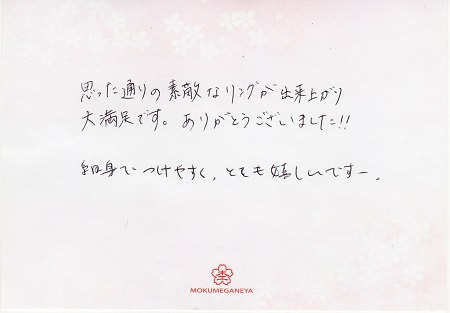 思った通りの素敵なリングが出来上がり
大満足です。ありがとうございました!!
細身でつけやすく、とても嬉しいですー。
MOKUMEGANEYA